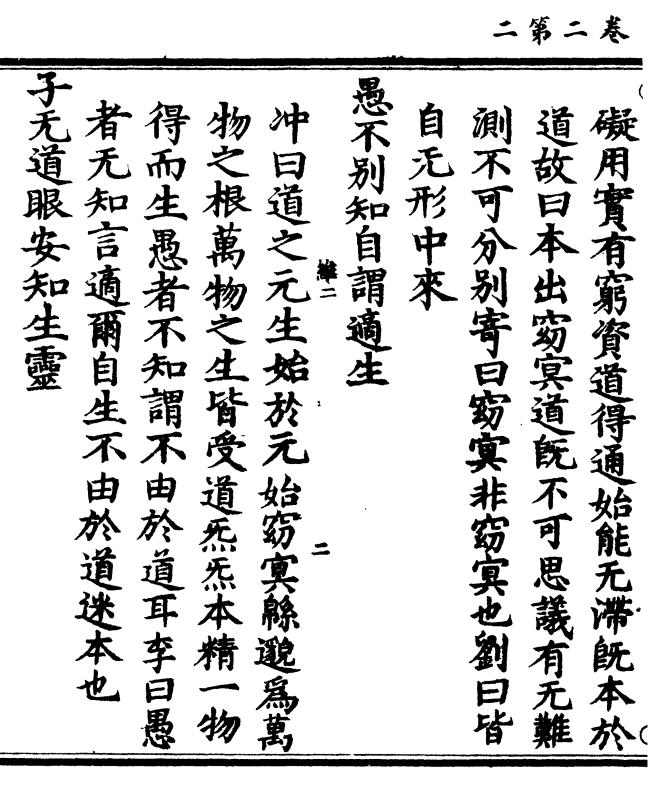 卷二第二
礙用實有窮資道得通始能无滯旣本於
道故曰本出窈冥道旣不可思議有无難
測不可分別寄曰窈冥非窈冥也劉曰皆
自无形中來
愚不別知自謂適生
維二
二
冲曰道之元生始於元始窈冥緜邈爲萬
物之根萬物之生皆受道炁炁本精一物
得而生愚者不知謂不由於道耳李曰愚
者无知言適爾自生不由於道迷本也
子无道眼安知生靈